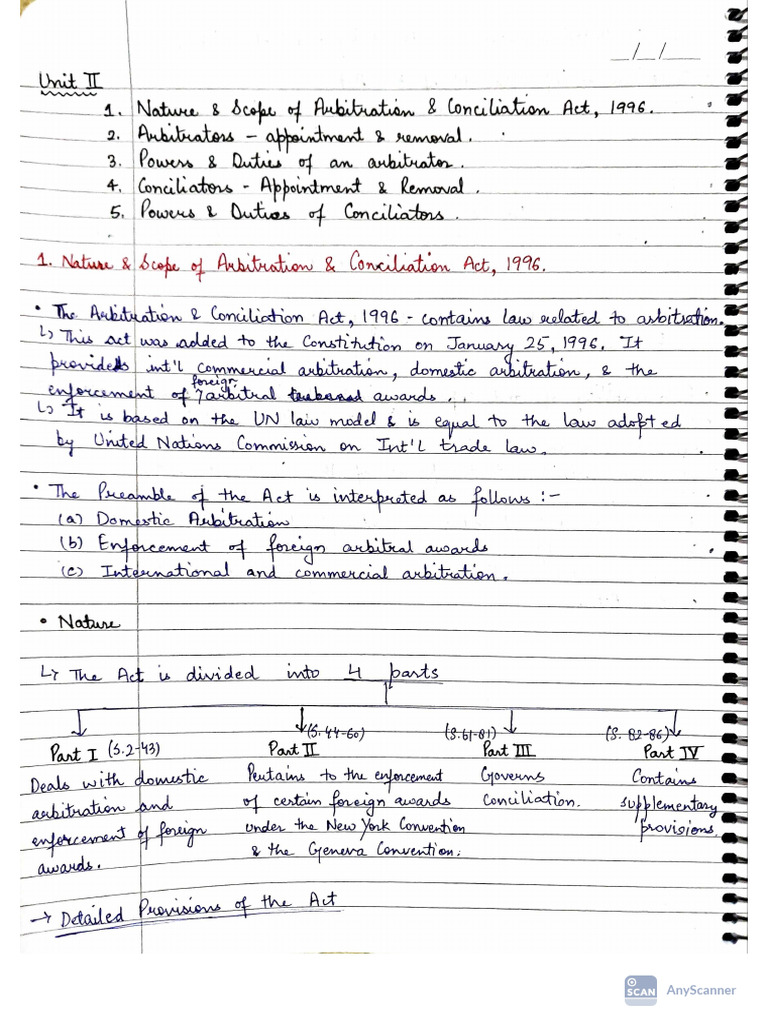 _/_/_
Unit II
1. Nature & Scope of Arbitration & Conciliation Act, 1996.
2. Arbitrators – appointment & removal.
3. Powers & Duties of an arbitrator.
4. Conciliators - Appointment & Removal.
5. Powers & Duties of Conciliators.
1. Nature & Scope of Arbitration & Conciliation Act, 1996.
• The Arbitration & Conciliation Act, 1996 - contains law related to arbitration.
↳ This act was added to the Constitution on January 25, 1996. It
provides int'l commercial arbitration, domestic arbitration, & the
foreign
enforcement of arbitral awards.
↳ It is based on the UN law model & is equal to the law adopted
by United Nations Commission on Int'l trade law.
• The Preamble of the Act is interpreted as follows :-
(a) Domestic Arbitration
(b) Enforcement of foreign arbitral awards
(c) International and commercial arbitration.
• Nature
↳ The Act is divided into 4 parts
Part I (S.2-43)
Deals with domestic
arbitration and
enforcement of foreign
awards.
(S. 44-60)
Part II
Pertains to the enforcement
of certain foreign awards
under the New York Convention
& the Geneva Convention.
(S.61-81)
Part III
Governs
Conciliation.
(S. 82-86)
Part IV
Contains
supplementary
provisions.
→ Detailed Provisions of the Act
SCAN AnyScanner